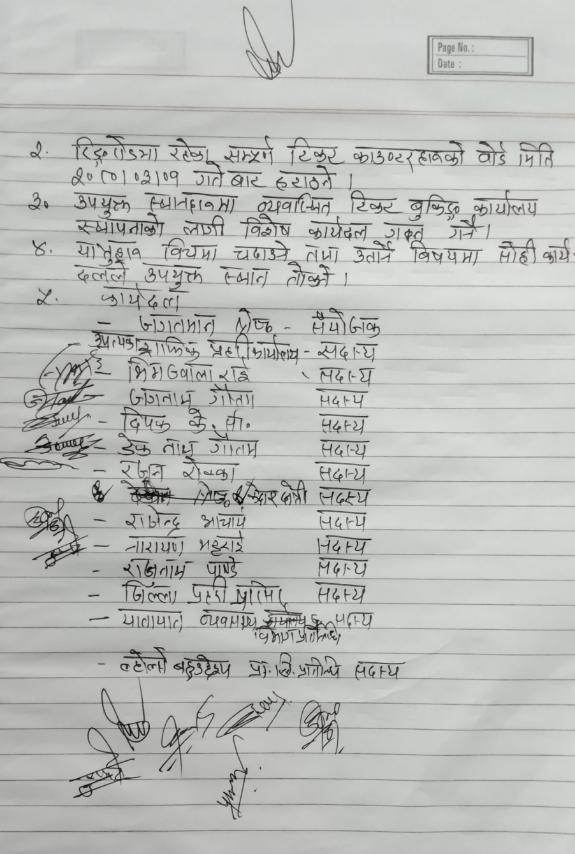 Page No. :
Date :
२. रिङ्गरोडमा रहेका सम्पूर्ण टिकट काउण्टरहरुको बोर्ड मिति
गते बाट हटाउने ।
३. उपयुक्त स्थानहरुमा व्यवस्थित टिकट बुकिङ्ग कार्यालय
स्थापनाको लागी विशेष कार्यदल गठन गर्ने ।
४. यात्रुहरु चढाउने तथा उतार्ने विषयमा सोही कार्य
दलले उपयुक्त स्थान तोक्ने ।
५. कार्यदल
- जगतमान श्रेष्ठ - संयोजक
ट्राफिक प्रहरी कार्यालय - सदस्य
- भिम ज्वाला राई सदस्य
- गौतम सदस्य
- दिपक के. सी. सदस्य
- डेक नाथ गौतम सदस्य
- रञ्जन सदस्य
श्रेष्ठ सदस्य
- राजेन्द्र आचार्य सदस्य
- नारायण भट्टराई सदस्य
- राजाराम पाण्डे सदस्य
- जिल्ला प्रहरी सदस्य
- यातायात व्यवस्था सदस्य
विभाग प्रतिनिधि
- बहुउद्देश्य प्रा. लि. प्रतिनिधि सदस्य